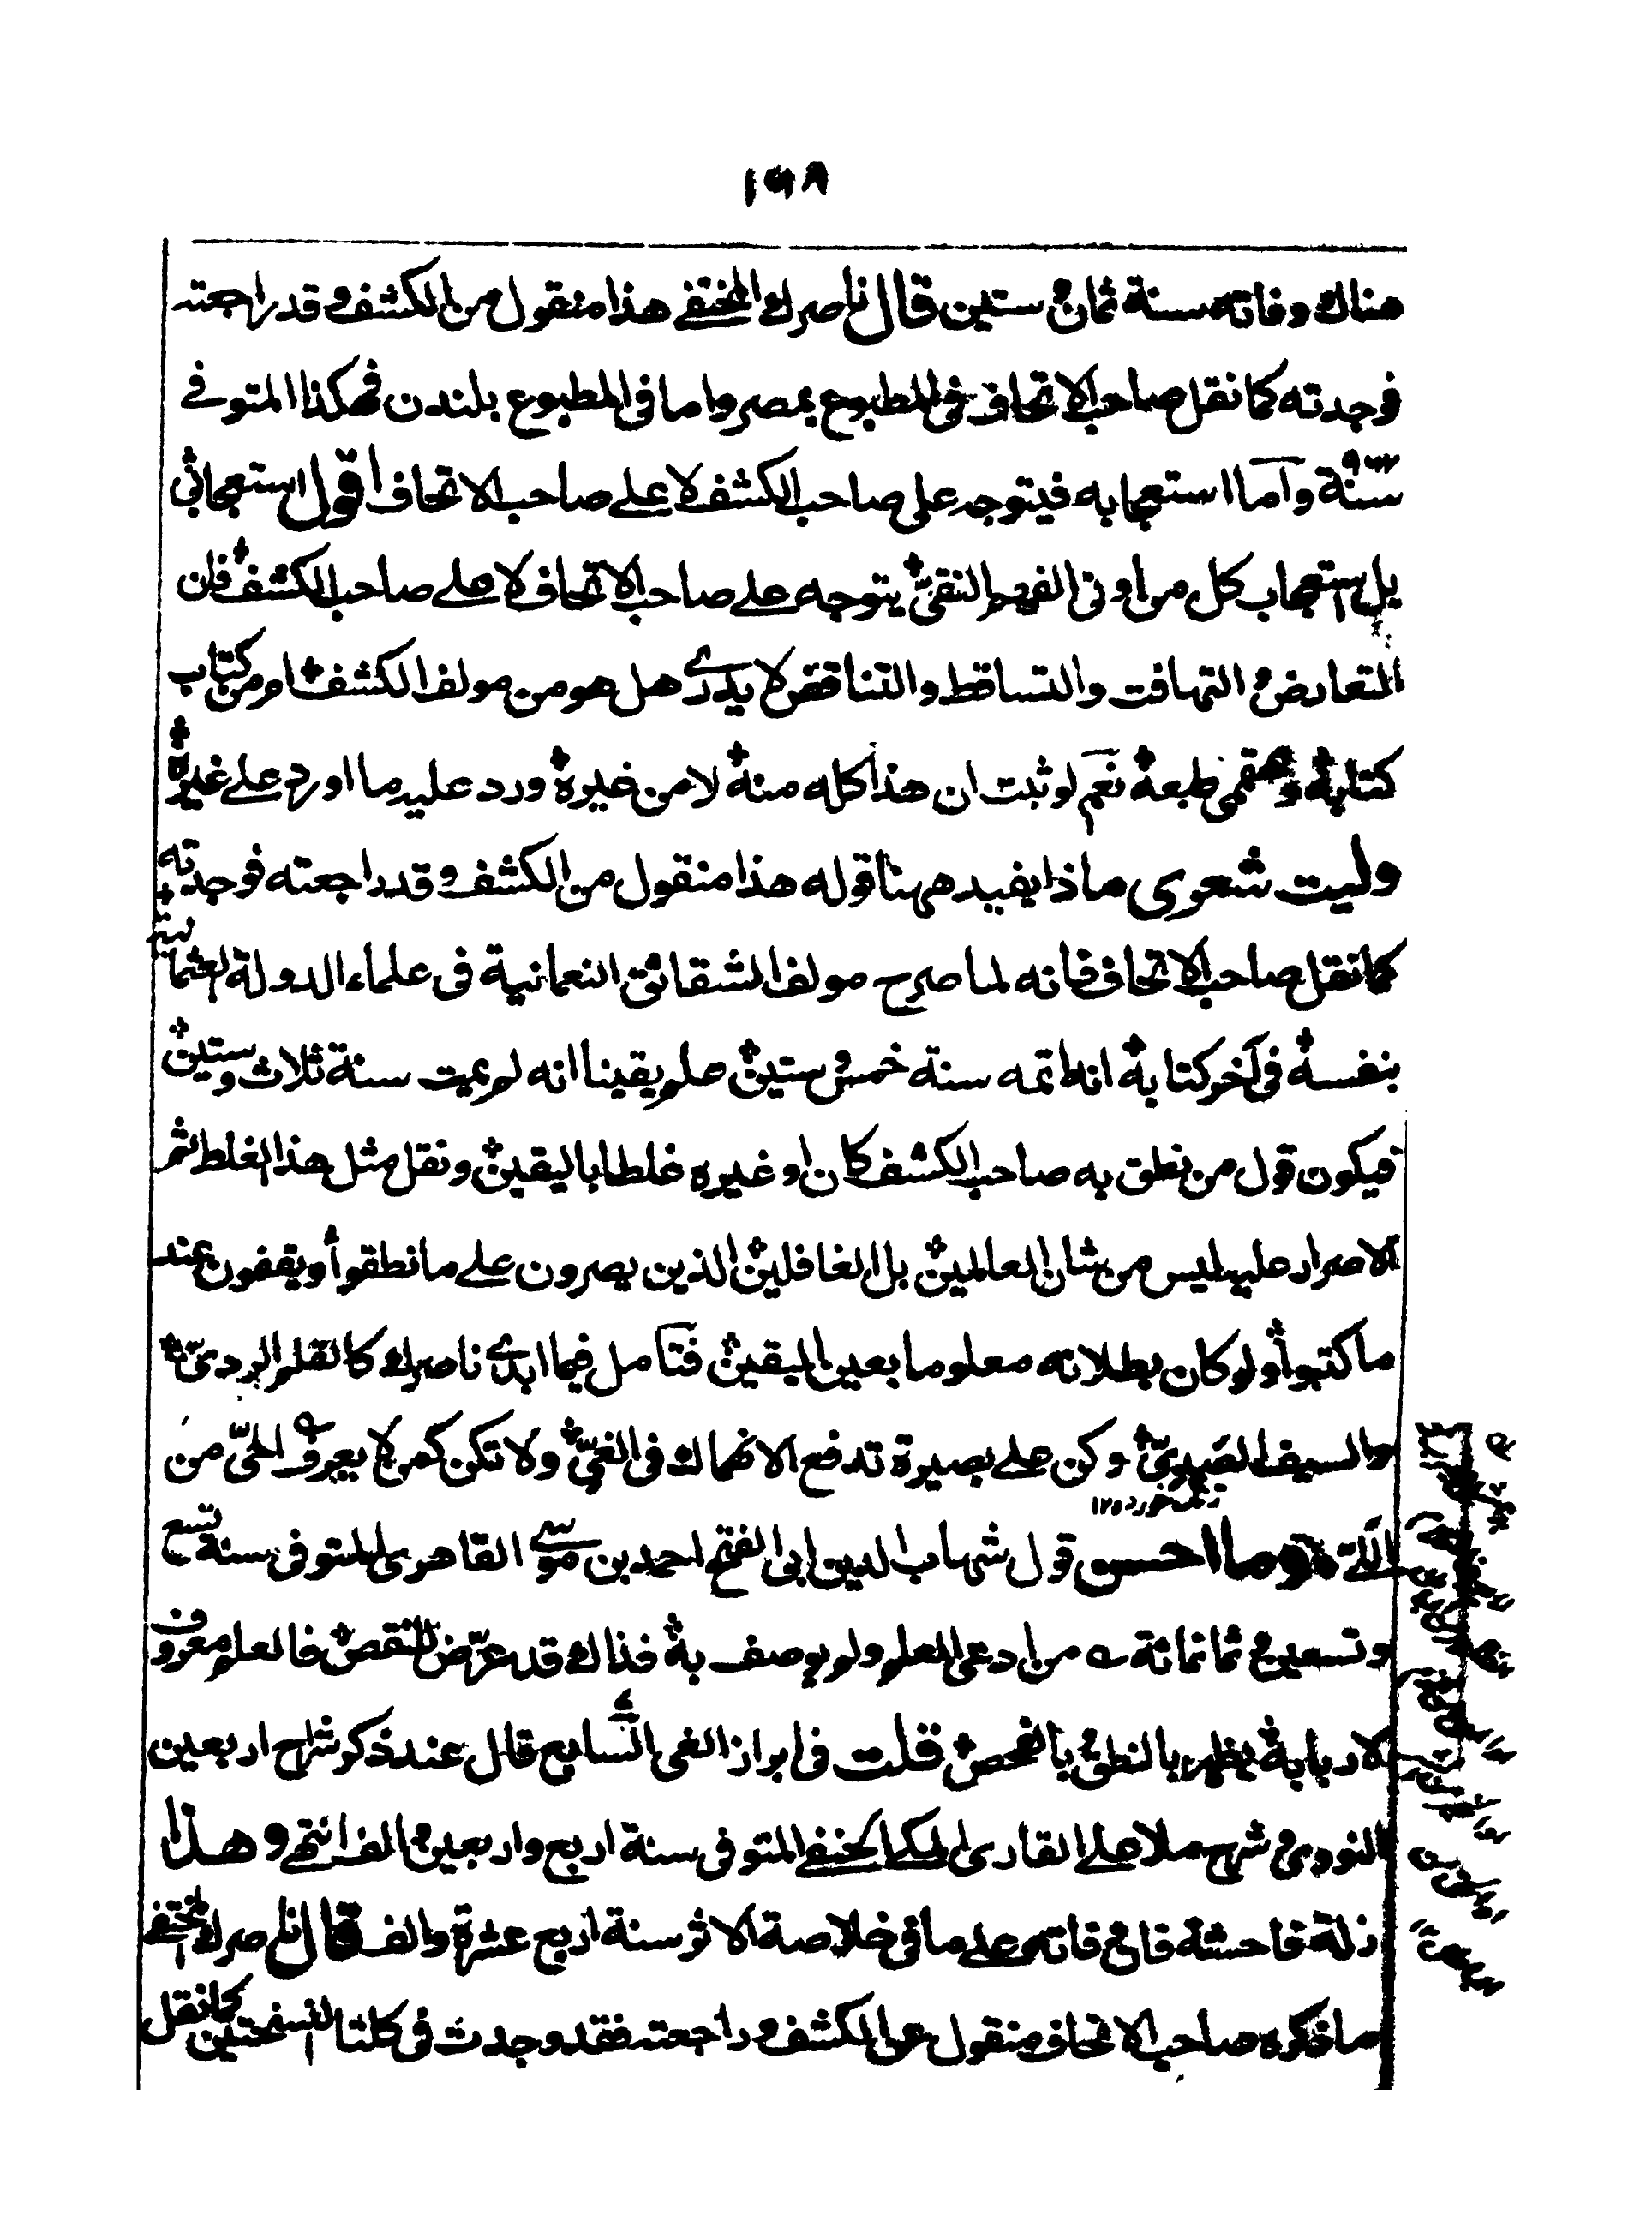 ١٦٨
هناك وفاته سنة ثمان و ستين قال ناصرك المختفے هذا منقول من الكشف و قد راجعته
فوجدته كما نقل صاحب الاتحاف فی المطبوع بمصر واما ما فی المطبوع بلندن فهكذا المتوفے
سنة وآما استعجابه فيتوجه علی صاحب الكشف لا علے صاحب الاتحاف اقول استعجابی
بل استعجاب كل من اوتی الفهم النقیّ يتوجه علے صاحب الاتحاف لا علے صاحب الكشف فان
التعارض و التهافت والتساقط والتناقض لا يدرے هل هو من مولف الكشف ام من كتاب
كتابه و طبعه نعم لو ثبت ان هذا كله منه لا من غيره ورد عليه ما اورد علے غيره
وليت شعوری ماذا يفيد ههنا قوله هذا منقول من الكشف و قد راجعته فوجدته
كما نقل صاحب الاتحاف فانه لما صرح مولف الشقائق النعمانية فی علماء الدولة العثمانية
بنفسه فی آخر كتابه انه اتمه سنة خمس و ستين علم يقينا انه لم يمت سنة ثلاث وستين
فيكون قول من نطق به صاحب الكشف كان او غيره غلطا باليقين و نقل مثل هذا الغلط ثم
الاصرار عليه ليس من شان العالمين بل الغافلين الذين يصرون علے ما نطقوا و يقفون عند
ما كتبوا ولو كان بطلانه معلوما بعين اليقين فتآمل فيما ابدے ناصرك كالقلم الردیّ
والسيف الصدیّ وكن علے بصيرة تدفع الانهماك فی الغیّ ولا تكن كمن لا يعرف الحیّ من
اللیّ وما احسن قول شهاب الدين ابی الفتح احمد بن موسے القاهری المتوفی سنة تسع
و تسعين و ثمانمائة ے من ادعی العلم ولم يوصف به فذاك قد عرّض للنقص فالعلم معروف
لاربابه يظهر بالنطق و بالفحص قلت فی ابراز الغی السابع قال عند ذكر شراح اربعين
النووی و شرح ملا علے القاری المكی الحنفے المتوفی سنة اربع واربعين و الف انتهے و هذا
زلة فاحشة فان وفاته علے ما فی خلاصة الاثر سنة اربع عشرة والف قال ناصرك المختفے
ما ذكره صاحب الاتحاف منقول عن الكشف و راجعته فقد وجدت فی كلتا النسختين كما نقل